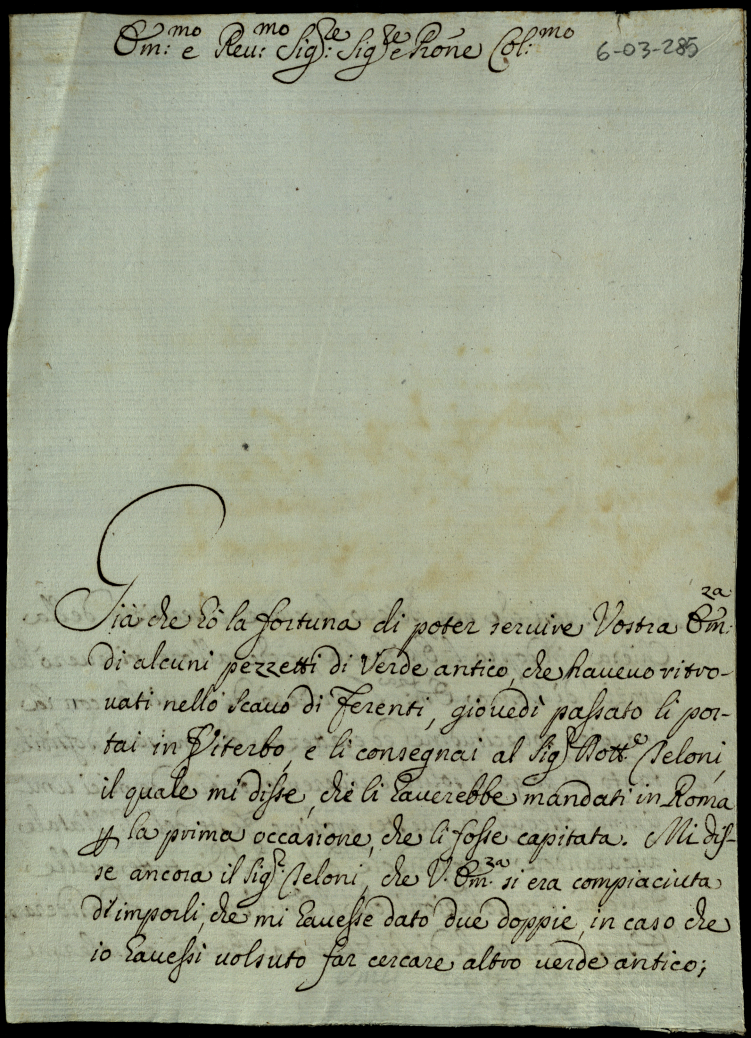 Em:mo e Reu:mo Sig:re Sig:re e Prone Col:mo
6-03-285
Già che hò la fortuna di poter seruire Vostra Em:za
di alcuni pezzetti di Verde antico, che haueuo ritro-
uati nello scauo di Ferenti, giouedì passato li por-
tai in Viterbo e li consegnai al Sig:r Dott:e Seloni,
il quale mi disse, che li hauerebbe mandati in Roma
ꝑ la prima occasione, che li fosse capitata. Mi dis-
se ancora il Sig:r Seloni, che V. Em:za si era compiaciuta
d'imporli, che mi hauesse dato due doppie, in caso che
io hauessi uolsuto far cercare altro uerde antico;